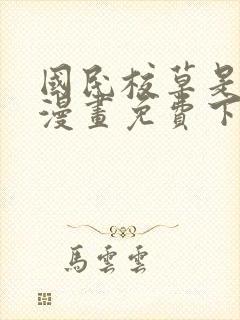 國民校草是
漫畫免費下
馬雲雲